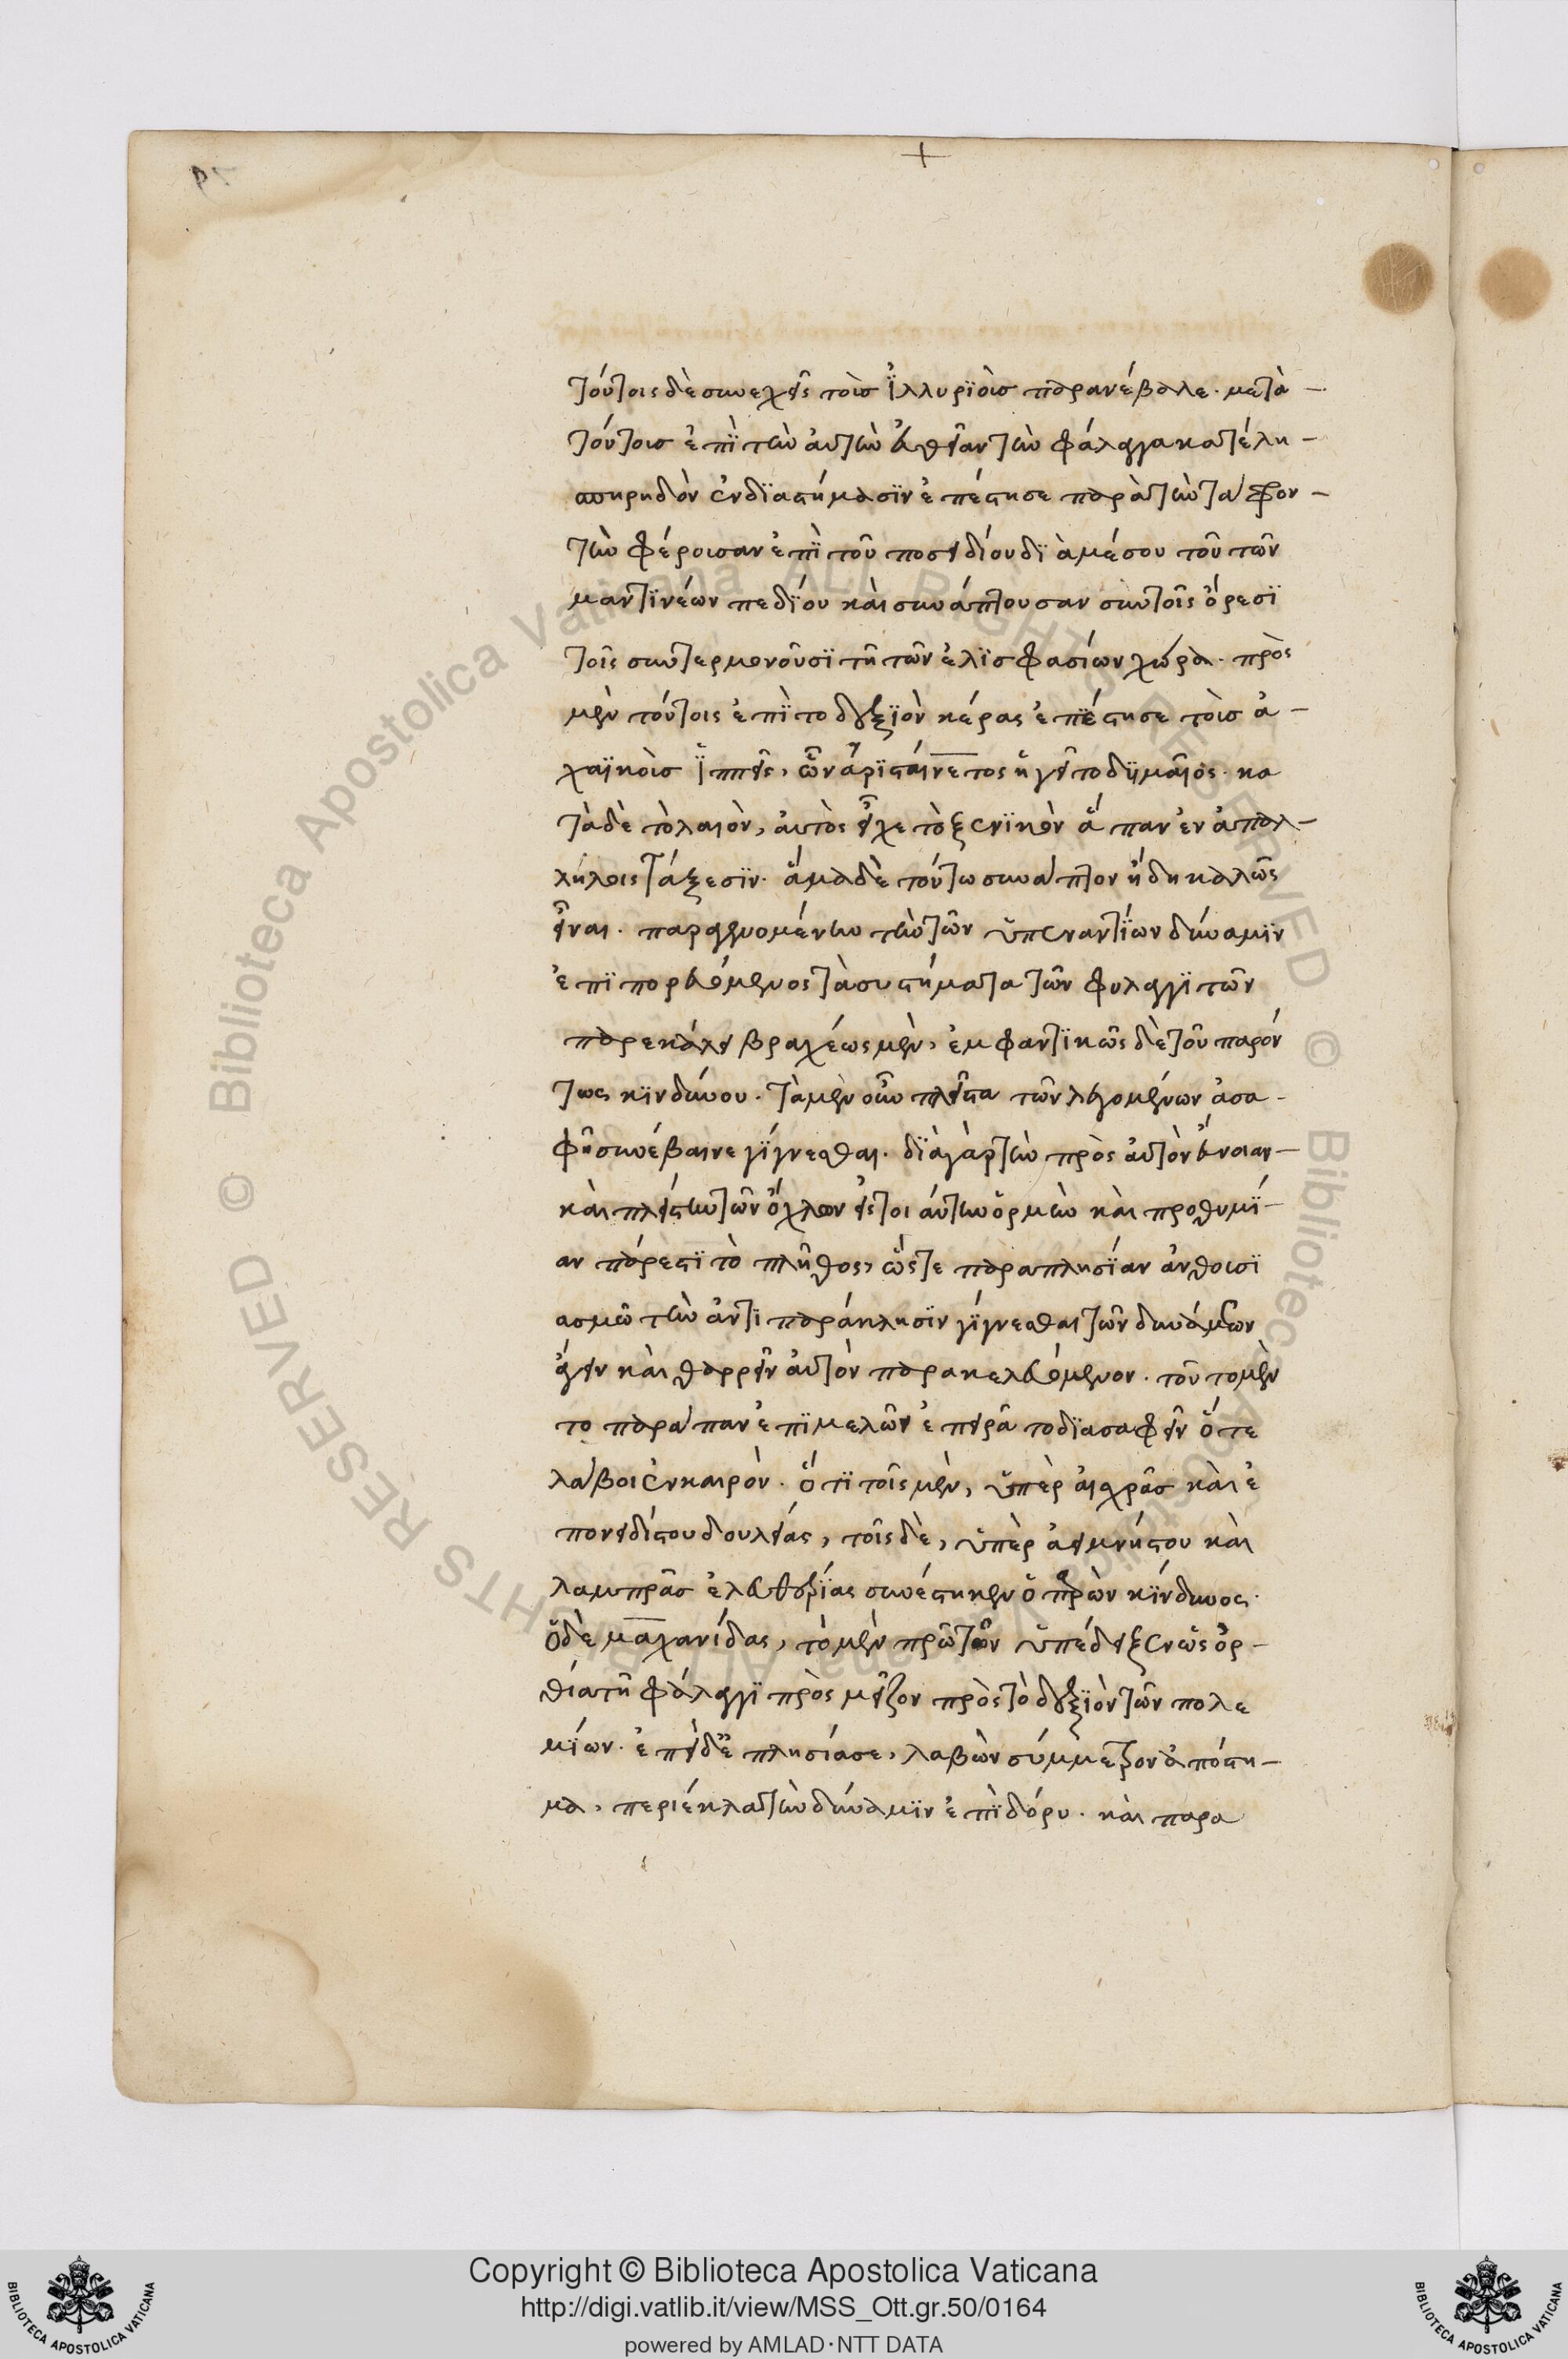 τούτοις δὲ συνεχεῖς τοὺς ἰλλυρϊοὺσ παρανέβαλε. μετὰ
τούτοισ ἐπὶ τὴν αὐτὴν εὐθεῖαν τὴν φάλαγγα κατὰ τέλη
σπηρηδὸν ἐν δϊαστήμασϊν ἐπέστησε παρὰ τὴν τάφρον
τὴν φέρουσαν ἐπὶ τοῦ ποσειδίου δϊὰ μέσου τοῦ τῶν
μαντϊνέων πεδϊου καὶ συνάπτουσαν συν τοῖς ὄρεσϊ
τοῖς συντερμονοῦσϊ τῆ τῶν ἐλϊσφασίων χώρα. πρὸς
μὲν τούτοις ἐπὶ το δεξϊὸν κέρας ἐπέστησε τοὺσ ἀ
χαϊκοὺσ ἵππεῖς, ὧν ἀρϊσταίνετος ἡγεῖτο δϋμαῖος. κα
τὰ δὲ τὸ λαιὸν, αὐτὸς εἶχε τὸ ξενϊκὸν ἅπαν ἐν ἀπαλ
λήλοις τάξεσϊν. ἅμα δὲ τούτω συνάπτον ἤδη καλῶς
εἶναι. παραγενομένην τὴν τῶν ὑπεναντίων δύναμϊν
ἐπϊπορευόμενος τὰ συστήματα τῶν φυλαγγϊτῶν
παρεκάλει βραχέως μὲν, ἐμφαντϊκῶς δὲ τοῦ παρόν
τως κϊνδύνου. τὰ μὲν οὖν πλεῖστα τῶν λεγομένων ἀσα
φῆ συνέβαινε γίγνεσθαι. δϊὰ γὰρ τὴν πρὸς αὐτὸν εὔνοιαν
καὶ πλείστην τῶν ὄχλων εἰς τοι αὔτην ὁρμὴν καὶ προθυμί
αν πάρεστϊ τὸ πλῆθος, ὥστε παραπλησίαν ἀνθουσϊ
ασμῶ τὴν ἀντϊπαράκλησϊν γίγνεσθαι τῶν δυνάμεων
ἄγειν καὶ θαρρεῖν αὐτὸν παρακελευόμενον. τοῦτο μὲν
το παράπαν ἐπϊμελῶν ἐπειρᾶτο δϊασαφεῖν ὅτε
λάβοι ἐν καιρὸν. ὅτϊ τοῖς μὲν, ὑπὲρ αἰσχρᾶσ καὶ ἐ
πονειδίστου δουλείας, τοῖς δὲ, ὑπὲρ ἀειμνήστου καὶ
λαμπρᾶσ ἐλευθερίας συνέστηκεν ὁ παρὼν κίνδυνος.
ὁ δὲ μαχανίδας, τὸ μὲν πρῶτον ὑπέδειξεν ὡς ὀρ
θία τῆ φάλαγγϊ πρὸς μεῖζον πρὸς τὸ δεξϊὸν τῶν πολε
μίων. ἐπεὶ δὲ πλησίασε, λαβὼν σύμμετρον ἀπόστη
μα, περιέκλα τὴν δύναμϊν ἐπὶ δόρυ. καὶ παρα
Copyright © Biblioteca Apostolica Vaticana
http://digi.vatlib.it/view/MSS_Ott.gr.50/0164
powered by AMLAD·NTT DATA